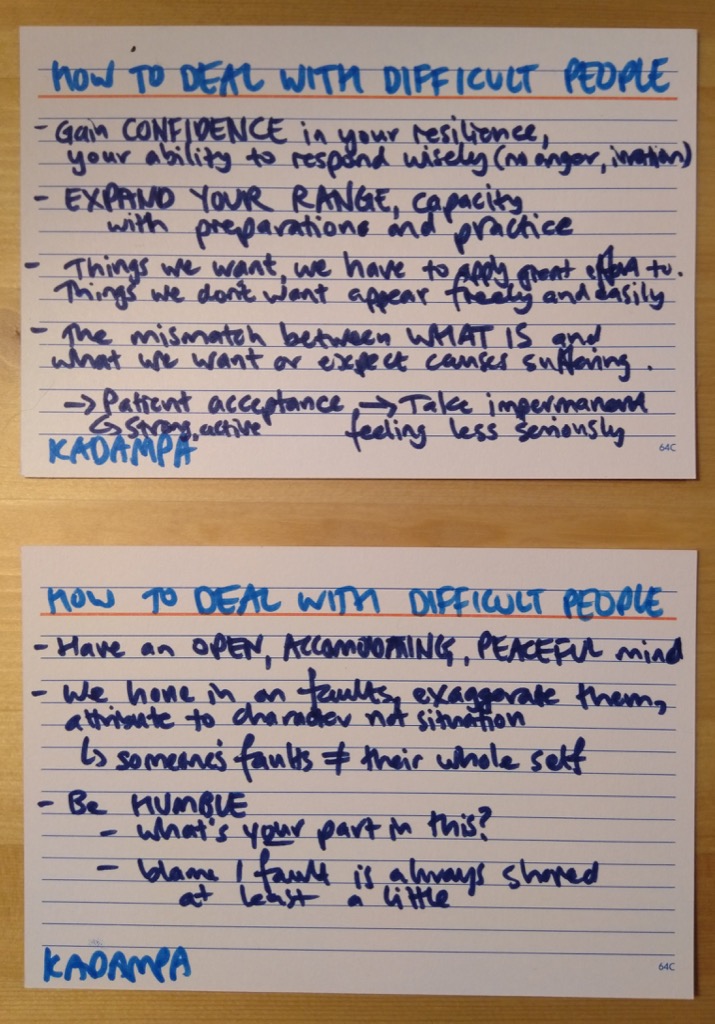 HOW TO DEAL WITH DIFFICULT PEOPLE
- Gain CONFIDENCE in your resilience,
your ability to respond wisely (no anger,
- EXPAND YOUR RANGE, capacity
with preparations and practice
- Things we want, we have to apply great effort to.
Things we don't want appear freely and easily
- The mismatch between WHAT IS and
what we want or expect causes suffering.
→ Patient acceptance, → Take impermanent
↳ Strong, active feeling less seriously
KADAMPA
64C
HOW TO DEAL WITH DIFFICULT PEOPLE
- Have an OPEN, PEACEFUL mind
- We hone in on faults, exaggerate them,
attribute to character not situation
↳ someone's faults ≠ their whole self
- Be HUMBLE
- what's your part in this?
- blame / fault is always shared
at least a little
KADAMPA
64C